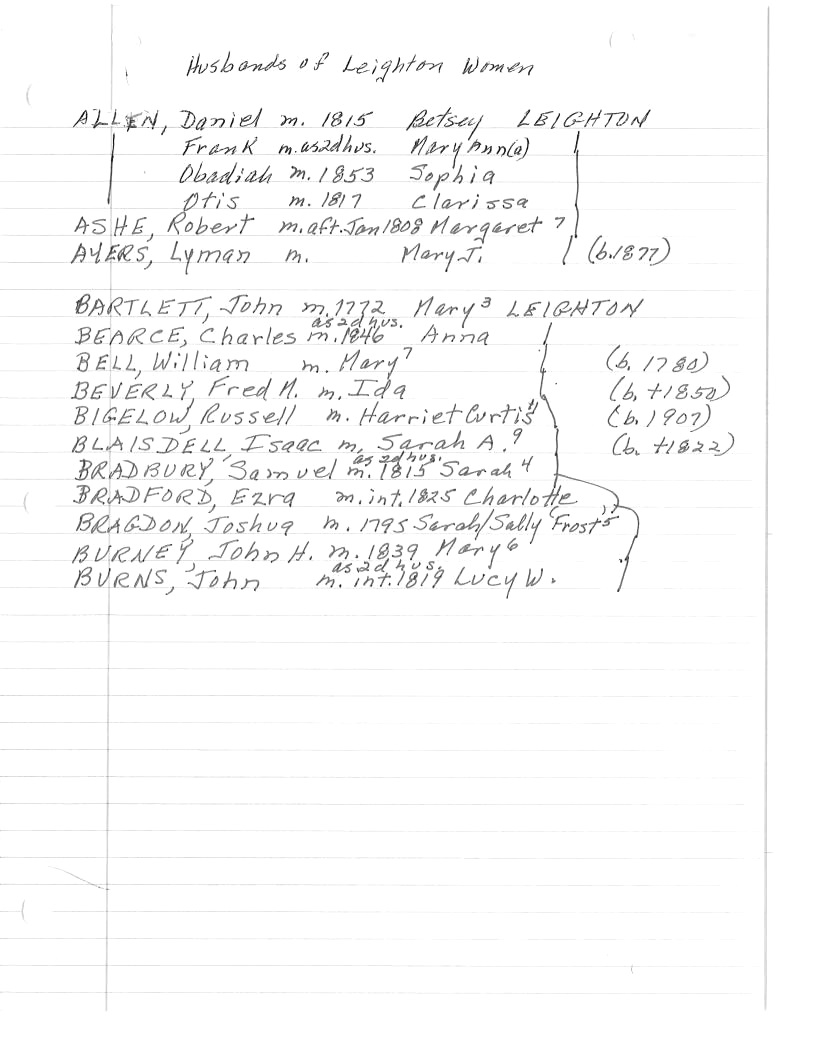 Husbands of Leighton Women
ALLEN, Daniel m. 1815 Betsey LEIGHTON
Frank m. as 2d hus. Mary Ann(a)
Obadiah m. 1853 Sophia
Otis m. 1817 Clarissa
ASHE, Robert m. aft. Jan 1808 Margaret 7
AYERS, Lyman m. Mary J. (b. 1877)
BARTLETT, John m. 1772 Mary 3 LEIGHTON
as 2d hus.
BEARCE, Charles m. 1846 Anna
BELL, William m. Mary 7 (b. 1780)
BEVERLY, Fred M. m. Ida (b. +1850)
BIGELOW, Russell m. Harriet Curtis 11 (b. 1907)
BLAISDELL, Isaac m. Sarah A. 9 (b. +1822)
as 2d hus.
BRADBURY, Samuel m. 1815 Sarah 4
BRADFORD, Ezra m. int. 1825 Charlotte
BRAGDON, Joshua m. 1795 Sarah/Sally Frost 5
BURNEY, John H. m. 1839 Mary 6
as 2d hus.
BURNS, John m. int. 1819 Lucy W.